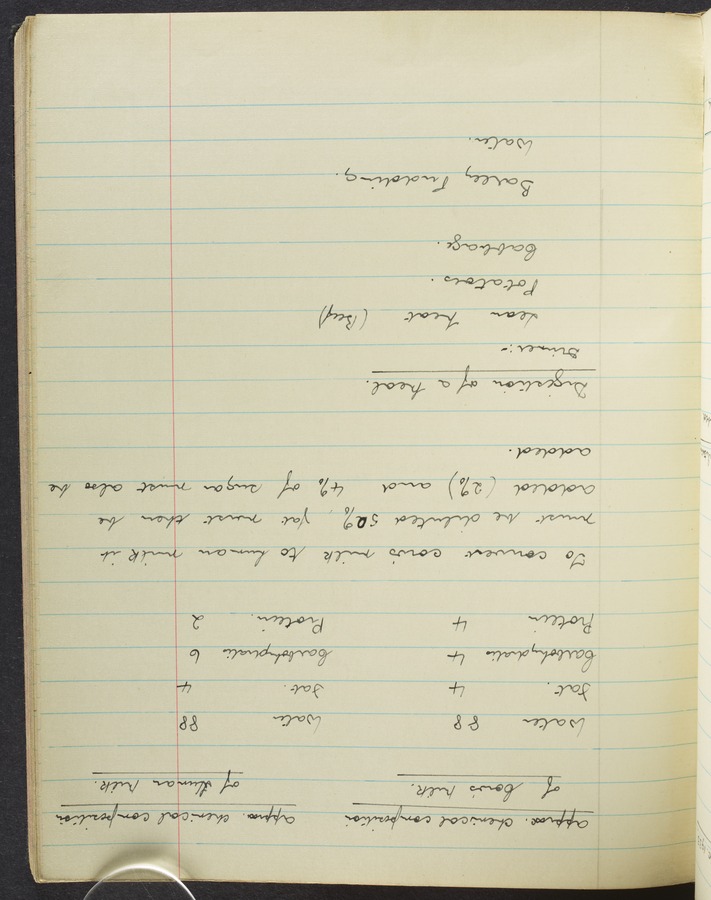 approx. chemical composition approx. chemical composition
of Cow's Milk. of Human Milk.
Water 88 Water 88
Fat. 4 Fat. 4
Carbohydrates 4 Carbohydrates 6
Protein 4 Protein. 2
To convert cow's milk to human milk it
must be diluted 50%, fat must then be
added (2%) and 4% of sugar must also be
added.
Digestion of a Meal.
Dinner:-
Lean Meat (Beef)
Potatoes.
Cabbage.
Barley Pudding.
Water.